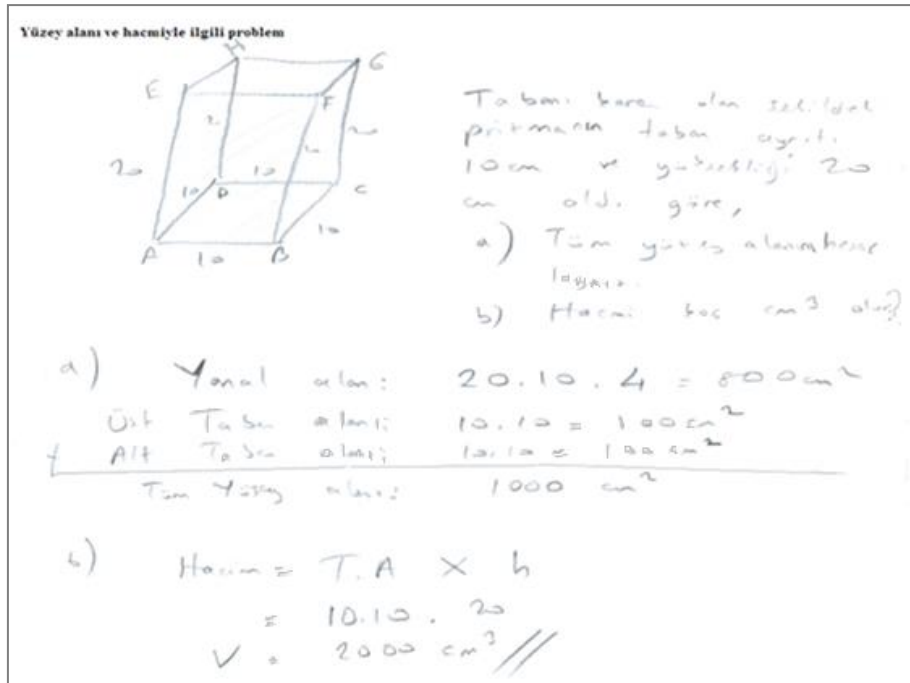 Yüzey alanı ve hacmiyle ilgili problem
H
G
E
F
20
2
20
10
10
D
C
10
A
10
B
Tabanı kare olan şekildeki
prizmanın taban ayrıtı
10 cm ve yüksekliği 20
cm oldu. göre,
a) Tüm yüzey alanını hesap
layınız.
b) Hacmi kaç cm³ olur?
a) Yanal alan: 20.10.4 = 800 cm²
Üst Taban alanı: 10.10 = 100 cm²
+ Alt Taban alanı: 10.10 = 100 cm²
Tüm Yüzey alanı: 1000 cm²
b) Hacim = T.A X h
= 10.10 . 20
V = 2000 cm³ //